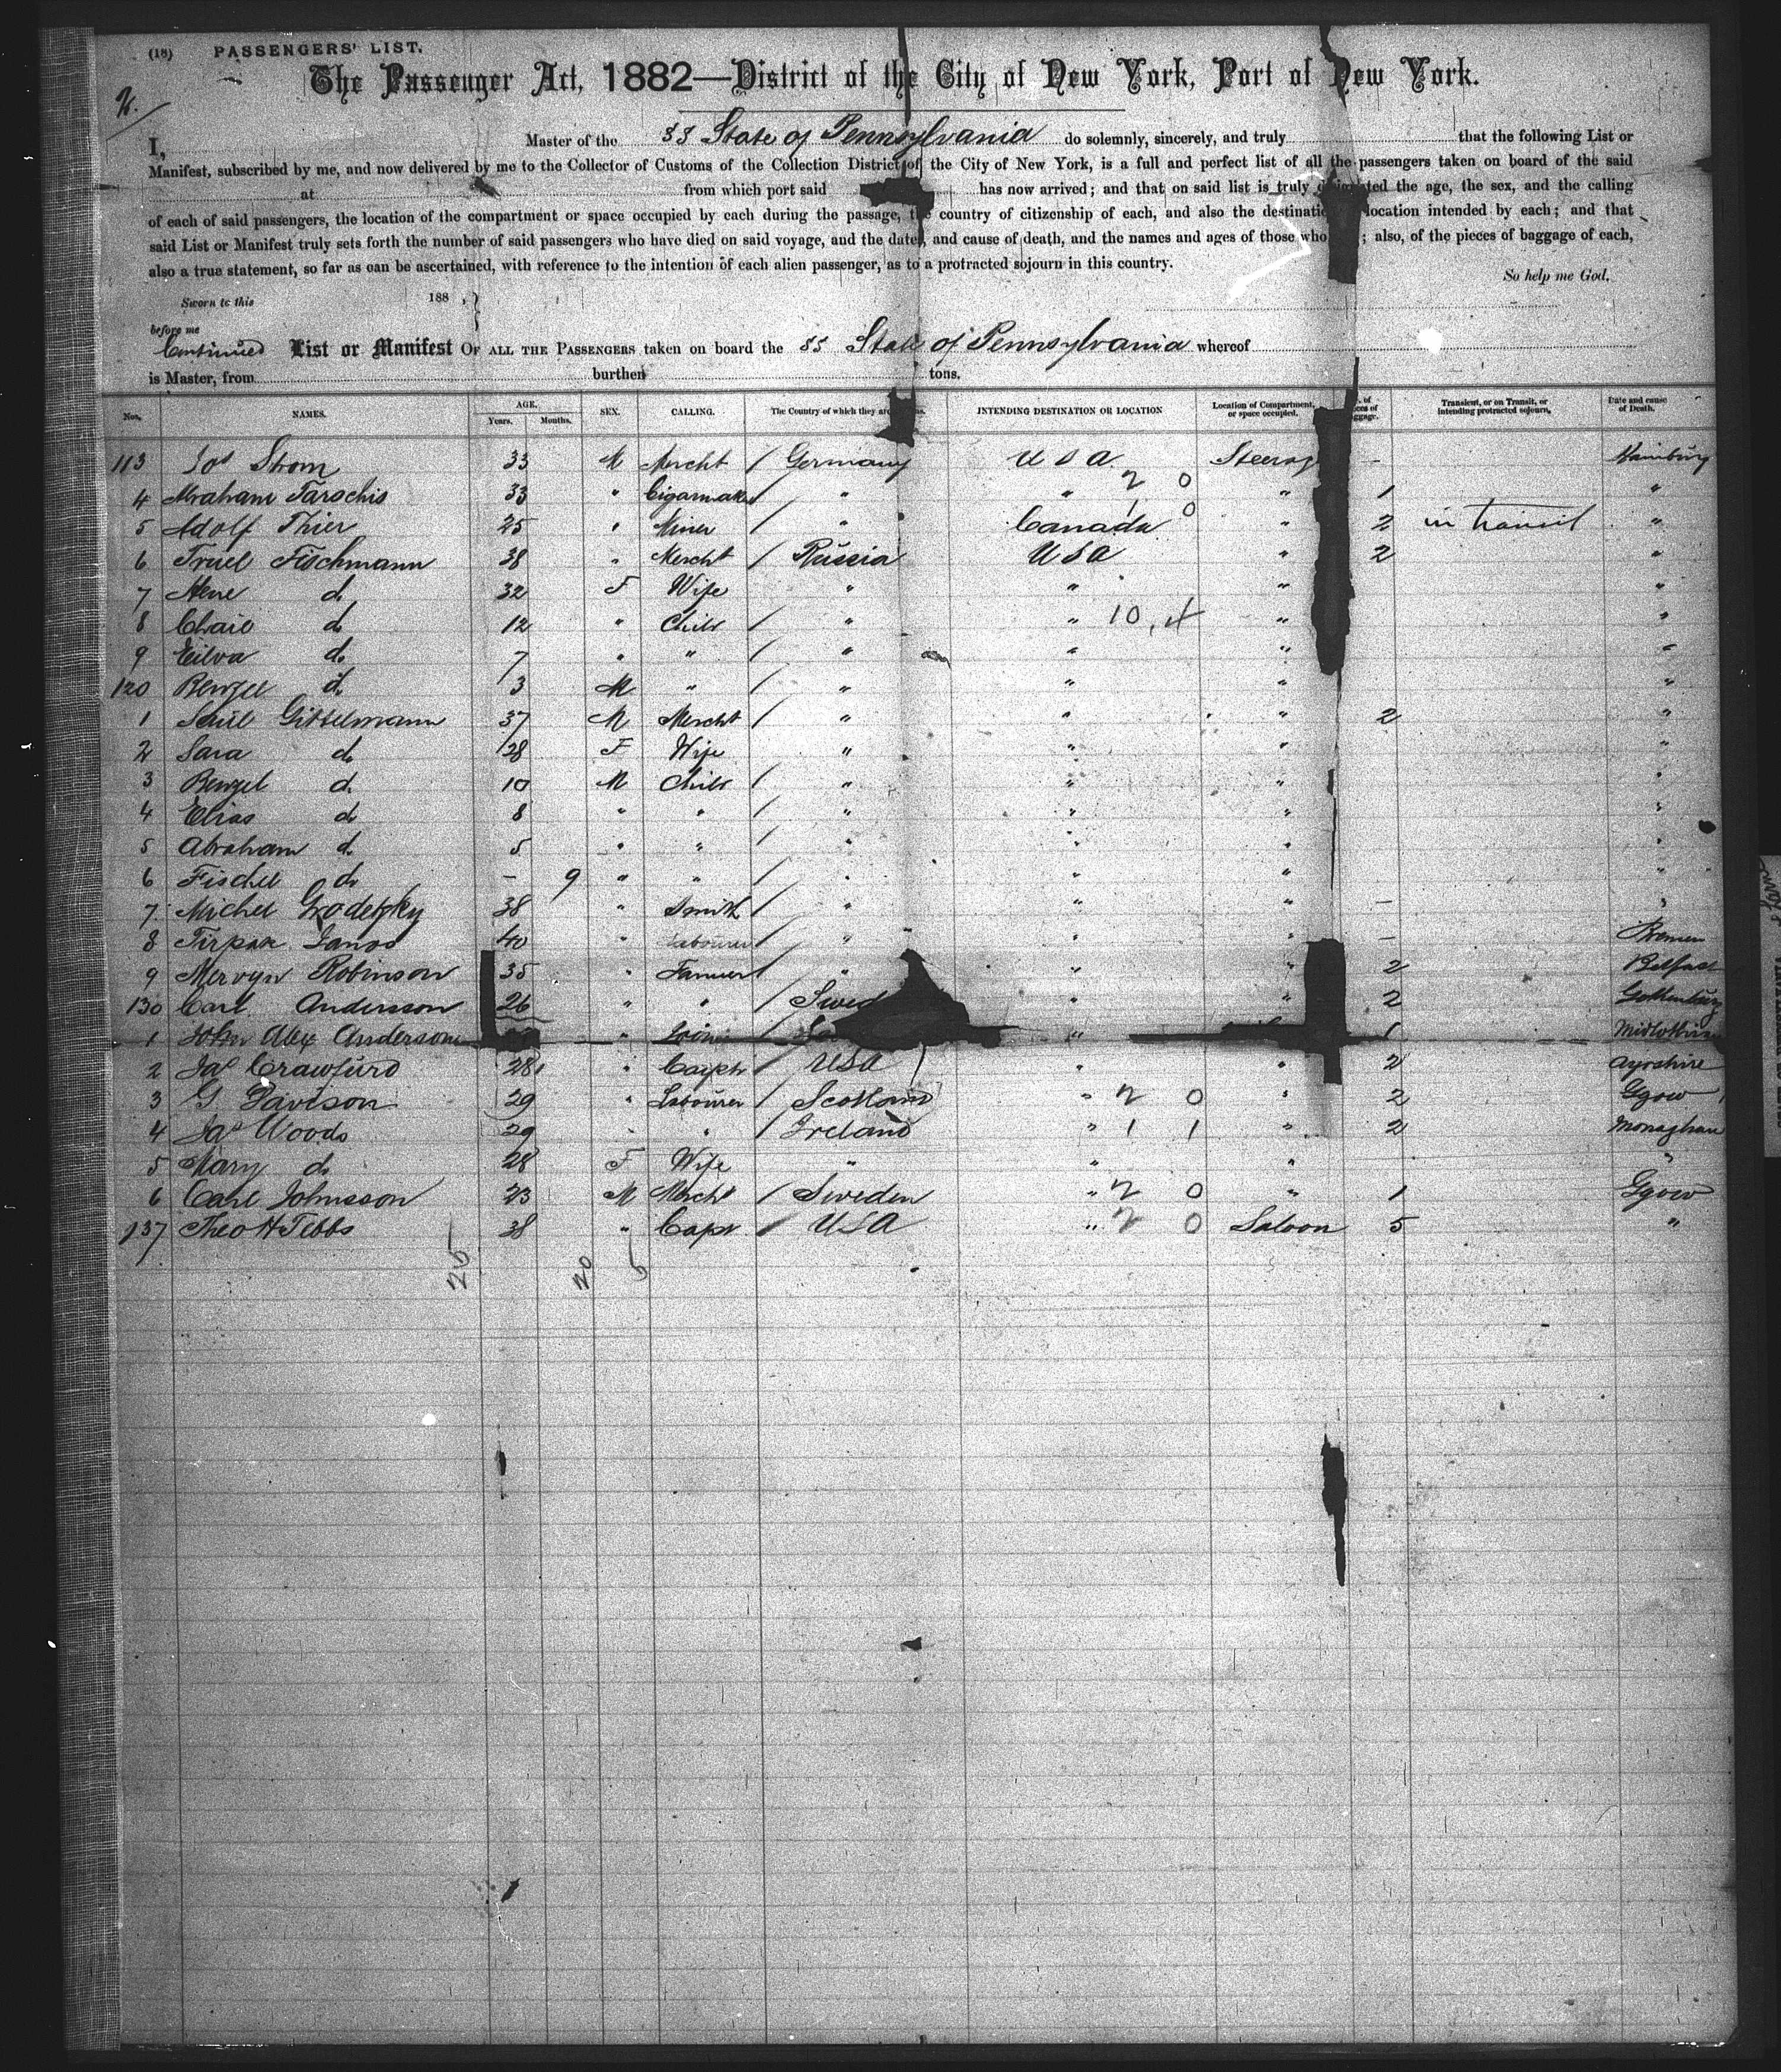 (18) PASSENGERS' LIST.
The Passenger Act, 1882—District of the City of New York, Port of New York.
I, Master of the SS State of Pennsylvania do solemnly, sincerely, and truly that the following List or
Manifest, subscribed by me, and now delivered by me to the Collector of Customs of the Collection District of the City of New York, is a full and perfect list of all the passengers taken on board of the said
at from which port said has now arrived; and that on said list is truly the age, the sex, and the calling
of each of said passengers, the location of the compartment or space occupied by each during the passage, the country of citizenship of each, and also the location intended by each; and that
said List or Manifest truly sets forth the number of said passengers who have died on said voyage, and the date, and cause of death, and the names and ages of those who ; also, of the pieces of baggage of each,
also a true statement, so far as can be ascertained, with reference to the intention of each alien passenger, as to a protracted sojourn in this country.
So help me God.
Sworn to this 188 ,
before me
Continued List or Manifest OF ALL THE PASSENGERS taken on board the SS State of Pennsylvania whereof
is Master, from burthen tons.
Nos. NAMES. AGE. Years. Months. SEX. CALLING. The Country of which they are INTENDING DESTINATION OR LOCATION Location of Compartment, or space occupied. of Transient, or on Transit, or intending protracted sojourn. Date and cause of Death.
113 Jos Strom 33 M Mercht / Germany USA Steerag - Hamburg
4 Abraham Tarochis 33 " Cigarmaker / " " 2 0 " 1 "
5 Adolf Thier 25 " Miner / " Canada 1 0 " 2 in transit "
6 Truel Fischmann 38 " Mercht / Russia USA " 2 "
7 Hene do 32 F Wife " " " "
8 Chaie do 12 " Child / " " 10, 4 " "
9 do 7 " " / " " " "
120 do 3 M " / " " " "
1 Gittelmann 37 M Mercht / " " " 2 "
2 Sara do 28 F Wife " " " "
3 Benzel do 10 M Child / " " " "
4 Elias do 8 " " / " " " "
5 Abraham do 5 " " / " " " "
6 Fischel do - 9 " " / " " " "
7 Michel Grodetzky 38 " Smith / " " " - "
8 Tirpak Janos 40 " Labourer / " " " - Bremen
9 Mervyn Robinson 35 " Farmer / " " " 2 Belfast
130 Carl Andersson 26 " " / Swed " " 2 Gothenburg
1 John Alex Anderson " / " 1 Midlothian
2 Jas Crawfurd 28 " Carptr / USA " " 2 Ayrshire
3 G Davison 29 " Labourer / Scotland " 2 0 " 2 Ggow
4 Jas Woods 29 " " / Ireland " 1 1 " 2 Monaghan
5 Mary do 28 F Wife " " " "
6 Carl Johnsson 23 M Mercht / Sweden " 2 0 " 1 Ggow
137 Theo H Tebbs 38 " Capt / USA " 2 0 Saloon 5 "
25 20 5